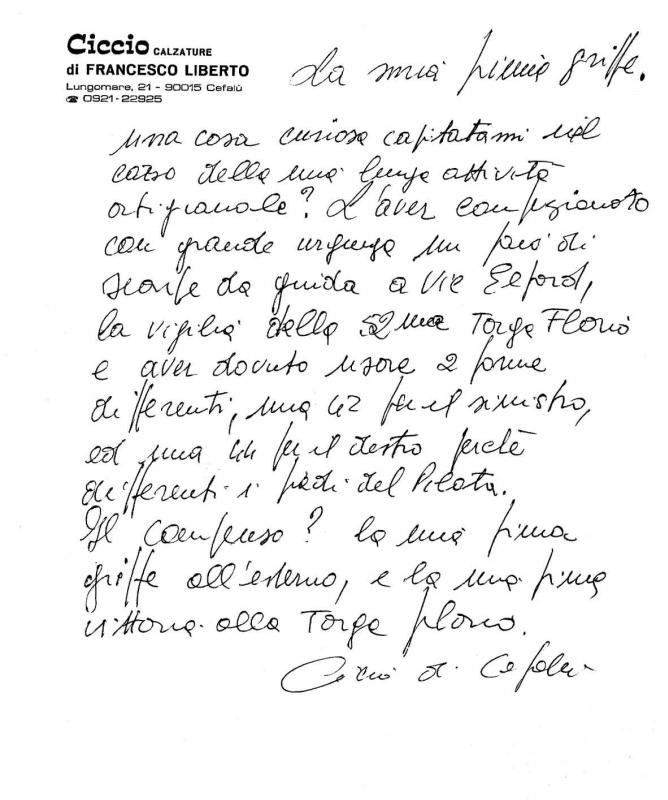 Ciccio CALZATURE
di FRANCESCO LIBERTO
Lungomare, 21 - 90015 Cefalù
☎ 0921-22925
La mia prima griffe.
una cosa curiosa capitatami nel
corso della mia lunga attività
artigianale? L'aver confezionato
con grande urgenza un paio di
scarpe da guida a Vic Elford,
la vigilia della 52ma Targa Florio
e aver dovuto usare 2 forme
differenti, una 42 per il sinistro,
ed una 44 per il destro perchè
differenti i piedi del Pilota.
Il compenso? la mia prima
griffe all'esterno, e la mia prima
vittoria alla Targa Florio.
Ciccio di Cefalù